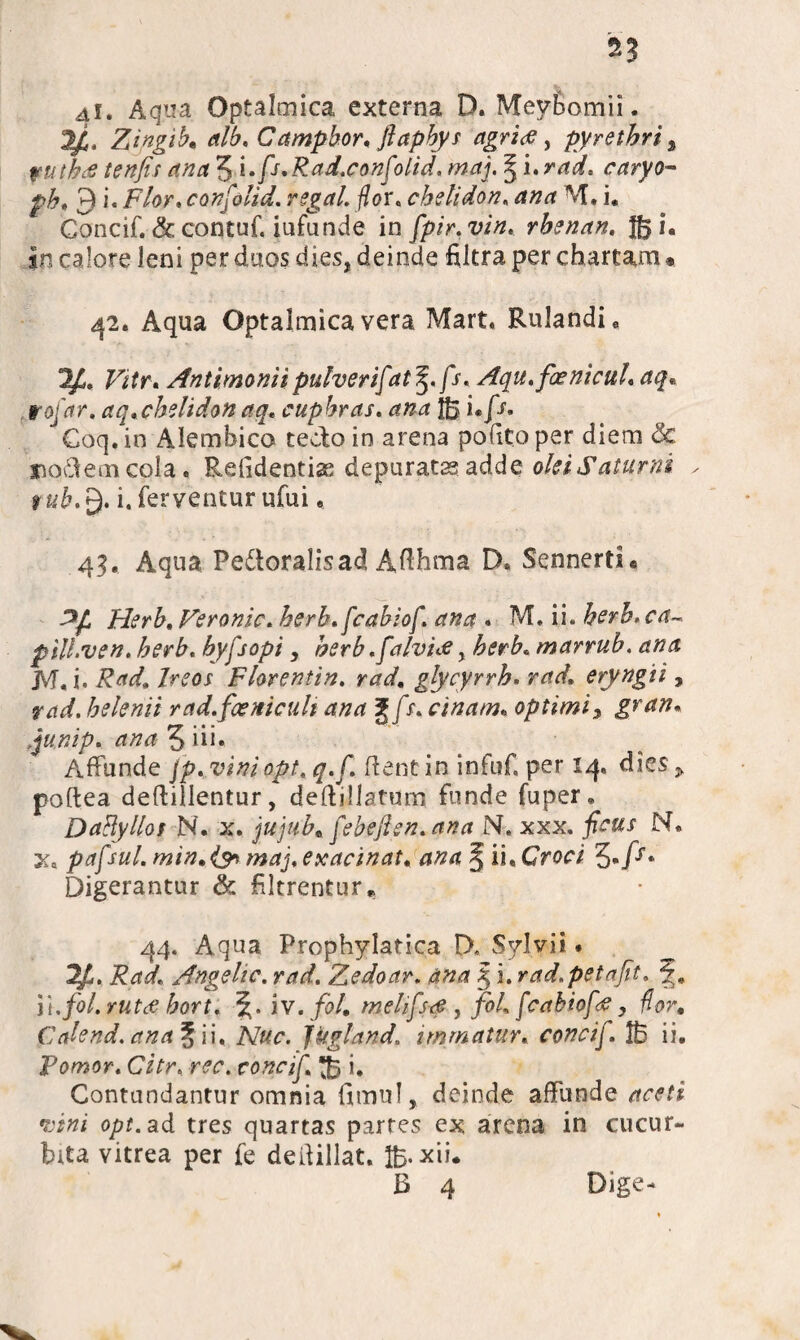 23
41. Aqua Optalmica externa D. Meybomii.
℞. Zingib. alb. Camphor. ſtaphys agriæ, pyrethri,
ruthæ tenſis ana ʒ i. ſs. Rad. conſolid. maj. ℥ i. rad. caryo-
ph. ℈ i. Flor. conſolid. regal. flor. chelidon. ana M. i.
Conciſ. & contuſ. iufunde in ſpir. vin. rhenan. ℔ i.
in calore leni per duos dies, deinde filtra per chartam.
42. Aqua Optalmica vera Mart. Rulandi.
℞. Vitr. Antimonii pulveriſat ℥. ſs. Aqu. fœnicul. aq.
roſar. aq. chelidon aq. euphras. ana ℔ i. ſs.
Coq. in Alembico tecto in arena poſito per diem &
noctem cola. Reſidentiæ depuratæ adde olei Saturni
rub. ℈. i. ferventur uſui.
43. Aqua Pectoralis ad Aſthma D. Sennerti.
℞ Herb. Veronic. herb. ſcabioſ. ana. M. ii. herb. ca-
pill. ven. herb. hyſsopi, herb. ſalviæ, herb. marrub. ana
M. i. Rad. Ireos Florentin. rad. glycyrrh. rad. eryngii,
rad. helenii rad. fœniculi ana ℥ ſs. cinam. optimi, gran.
junip. ana ʒ iii.
Affunde ſp. vini opt. q. ſ. ſtent in infuſ. per 14. dies,
poſtea deſtillentur, deſtillatum funde ſuper.
Dactyllos N. x. jujub. ſebeſten. ana N. xxx. ficus N.
x. paſsul. min. & maj. exacinat. ana ℥ ii. Croci ʒ. ſs.
Digerantur & filtrentur.
44. Aqua Prophylatica D. Sylvii.
℞. Rad. Angelic. rad. Zedoar. ana ℥ i. rad. petaſit. ℥.
ii. fol. rutæ hort. ℥. iv. fol. meliſsæ, fol. ſcabioſæ, flor.
Calend. ana ℥ ii. Nuc. Jugland. immatur. conciſ. ℔ ii.
Pomor. Citr. rec. conciſ. ℔ i.
Contundantur omnia ſimul, deinde affunde aceti
vini opt. ad tres quartas partes ex arena in cucur-
bita vitrea per ſe deſtillat. ℔. xii.
B 4 Dige-